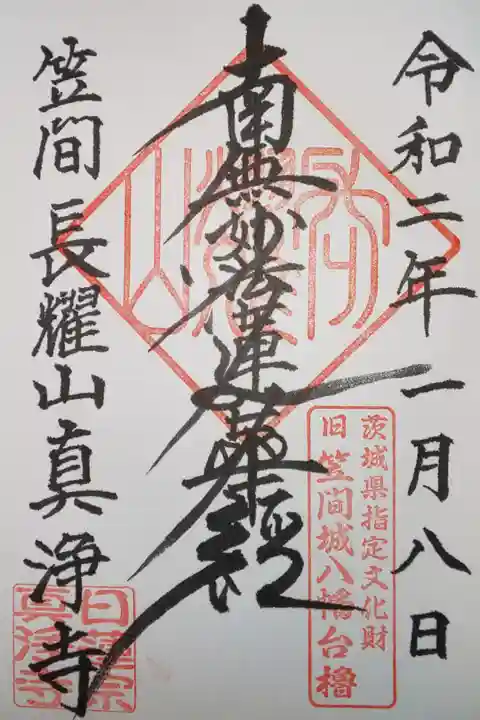 令和二年一月八日
茨城県指定文化財
旧笠間城八幡台櫓
南無妙法蓮華経
長耀山
笠間 長耀山真浄寺
日蓮宗
真浄寺